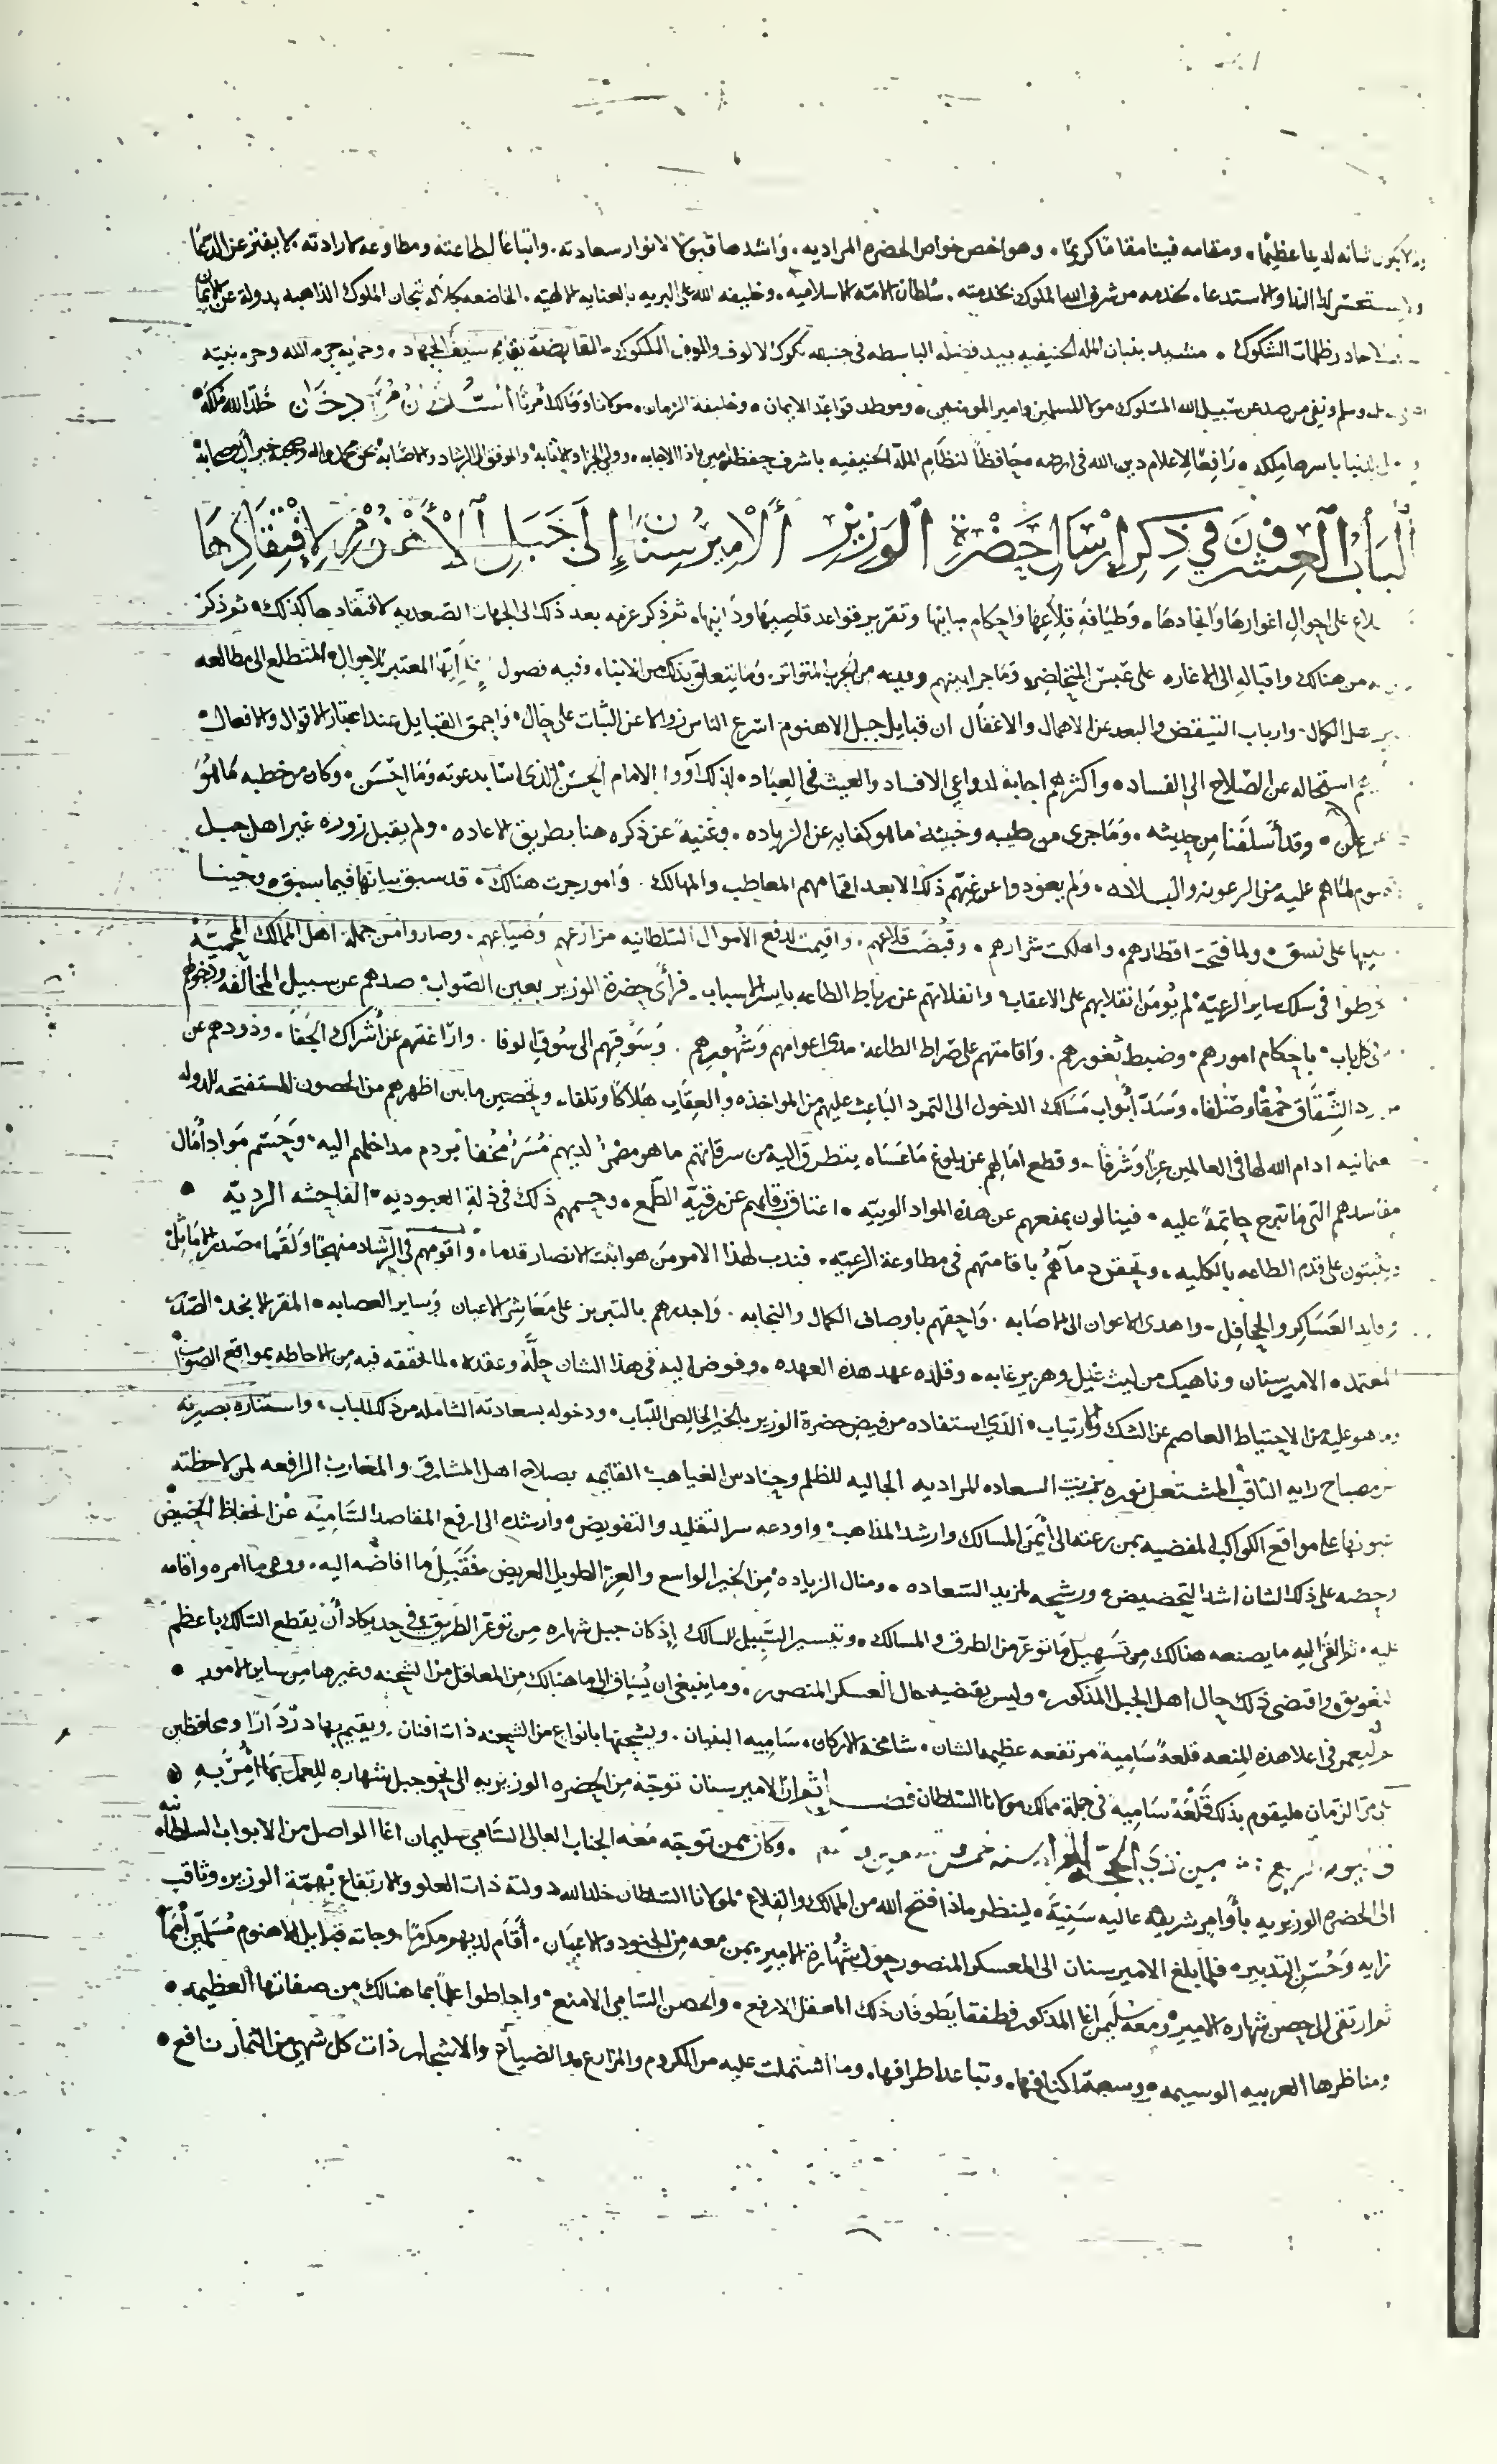 شانه لديها عظيما ومقامه فينا مقاما كريما وهو اخص خواص الحضره المراديه واشدها قبولا لانوار سعادته واتباعا لطاعته ومطاوعه لارادته لا يفتر عن
لذا الندا والاستدعا بخدمه من شرف الله الملوك بخدمته سلطان الامه الاسلاميه وخليفه الله على البريه بالعنايه الالهيه الخاضعه لجلاله تيجان الملوك الذاهبه بدولة
وظلمات الشكوك مشيد بنيان المله الحنيفيه بيد فضله الباسطه الالوف القابضه بقايم سيف الجهاد وحمايه حرم الله وحرم نبيه
وسلم ونفى من صد عن سبيل الله المسلوك مولا المسلمين وامير المومنين وموطد قواعد الايمان وخليفة الزمان مولانا ومالك امرنا السلطان مراد خان خلد الله ملكه
الدنيا باسرها ملكه رافعا لاعلام دين الله في ارضه محافظا لنظام الملة الحنيفيه باشرف حفظه امين والموفق الى الرشاد والاصابه بحق محمد واله وصحبه خير ال وصحابه
الباب العشرون في ذكر ارسال حضرة الوزير الامير سنان الى جبل الاهنوم لافتقادها
على احوال اغوارها وانجادها وطيافة قلاعها واحكام مبانيها وتقرير قواعد قاصيها ودانيها ثم ذكر عزمه بعد ذلك الى الجهات الصعديه لافتقادها كذلك ثم ذكر
من هنالك واقباله الى الاغاره على عبس وما جرا بينهم وبينه من الحرب المتواتر وما يتعلق بذلك من الانباء وفيه فصول ايها المعتبر للاحوال المتطلع الى مطالعه
الكمال وارباب التيقض والبعد عن الاهمال والاغفال ان قبايل جبل الاهنوم اسرع الناس زوالا عن الثبات على حال واحمق القبايل عند اعتبار الاقوال والافعال
استحاله عن الصلاح الى الفساده واكثرهم اجابة لدواعي الافساد والعيث في العباد لذلك آووا الامام الحسن الذي اسا بدعوته وما احسن وكان من خطبه ما هو
علن وقد أسلفنا من حديثه وما جرى من طيبه وخبيثه ما هو كفايه عن الزياده وغنية عن ذكره هنا بطريق الاعاده ولم يقبل زوره غير اهل جبل
لما هم عليه من الرعونه والبلاده ولم يعودوا عن غيهم ذلك الا بعد اقتحامهم المعاطب والمهالك وامور جرت هنالك قد سبق بيانها فيما سبق وجينا
على نسق ولما فتحت اقطارهم واهلكت شرارهم وقبضت قلاعهم واقيمت لدفع الاموال السلطانيه مزارعهم وضياعهم وصاروا من جملة اهل الممالك المحميه
في سلك ساير الرعيه لم يومن انقلابهم على الاعقاب وانفلاتهم عن رباط الطاعه بايسر الاسباب فرأى حضرة الوزير بعين الصواب صدهم عن سبيل المخالفه
باب باحكام امورهم وضبط ثغورهم واقامتهم على صراط الطاعة مدى اعوامهم وشهورهم وسوقهم الى سوق الوفا وازاغتهم عن اشراك الجفا وذودهم عن
الشقاق حمقا وصلفا وسد ابواب مسالك الدخول الى التمرد الباعث عليهم من المواخذه والعقاب هلاكا وتلفا وتحصين ما بين اظهرهم من الحصون المستفتحه للدوله
ادام الله لها في العالمين عزا وشرفا وقطع امالهم عن بلوغ ما عساه يتطرق اليه من سرقاتهم ما هو مضمرا لديهم بردم مداخلهم اليه وحسم مواد امال
مفاسدهم التي ما تبرح جاثمة عليه فينالون بمنعهم عن هذه المواد الوبيه اعتاق رقابهم عن رقية الطمع وحسمهم ذلك في ذلة العبوديه الفاحشه الرديه
ويثبتون على قدم الطاعه بالكليه وتحقن دمآهم باقامتهم في مطاوعة الرعيه فندب لهذا الامر من هو اثبت الانصار قدما واقومهم في الرشاد منهجا
وقايد العساكر والجحافل واهدى الاعوان الى الاصابه واحقهم باوصاف الكمال والنجابه واجدرهم بالتبريز على معاشر الاعيان وساير العصابه المقر الامجد
المعتمد الامير سنان وناهيك من ليث غيل وهزبر غابه وقلده عهد هذه العهده وفوض اليه في هذا الشان حله وعقده لما تحققه فيه من الاحاطه بمواقع الصواب
وما هو عليه من الاحتياط العاصم عن الشك والارتياب الذي استفاده من فيض حضرة الوزير بالخير الخالص اللباب ودخوله بسعادته الشامله من ذلك الباب واستناره بصيرته
من مصباح رايه الثاقب المشتعل نوره بزيت السعاده المراديه الجاليه للظلم وحنادس الغياهب القايمه بصلاح اهل المشارق والمغارب الرافعه لمن لاحظته
على مواقع الكواكب المفضيه بمن رعته الى أيمن المسالك وارشد المذاهب واودعه سر التقليد والتفويض وارشده الى ارفع المقاصد الساميه عن انخفاظ الحضيض
وحضه على ذلك الشان اشد التحضيض ورشحه لمزيد السعاده ومنال الزياده من الخير الواسع والعز الطويل العريض فقبل ما افاضه اليه ووعى ما امره واقامه
عليه ثم القى اليه ما يصنعه هنالك من تسهيل ما توعر من الطرق والمسالك وتيسير السبيل للسالك اذ كان جبل شهاره من توعر الطريق في حد يكاد أن يقطع السالك باعظم
تعويق واقتضى ذلك حال اهل الجبل المذكور وليس يقتضيه حال العسكر المنصور وما ينبغي ان يساق الى ما هنالك من المعاقل من الشحنه وغيرها من ساير الامور
وليعمر في اعلا هذه المنعه قلعة سامية مرتفعه عظيمه الشان شامخة الاركان ساميه البنيان ويشحنها بانواع من الشحنه ذات افنان ويقيم بها دزدارا ومحافظين
الزمان فليقوم بذلك قلعة ساميه في جملة ممالك مولانا السلطان فصل ثم ان الامير سنان توجه من الحضره الوزيريه الى نحو جبل شهاره للعمل بما أمر به
في يوم الربيع ذي الحجة الحرام سنه وكان ممن توجه معه الجناب العالي السامي سليمان اغا الواصل من الابواب السلطانيه
الى الحضره الوزيريه بأوامر شريفة عاليه سنية لينظر ماذا فتح الله من الممالك والقلاع لمولانا السلطان خلد الله دولته ذات العلو والارتفاع بهمة الوزير وثاقب
رايه وحسن التدبير فلما بلغ الامير سنان الى المعسكر المنصور حول شهارة الامير بمن معه من الجنود والاعيان أقام لديهم مكرما وجاته قبايل الاهنوم مسلمين
ثم ارتقى الى حصن شهاره الامير ومعه سليمن اغا المذكور فطفقا يطوفان ذلك المعقل الارفع والحصن السامي الامنع واحاطوا علما بما هنالك من صفاتها العظيمه
ومناظرها الغريبه الوسيمه وسعة اكنافها وتباعد اطرافها وما اشتملت عليه من الكروم والمزارع والضياع والاشجار ذات كل شهي من الثمار نافع